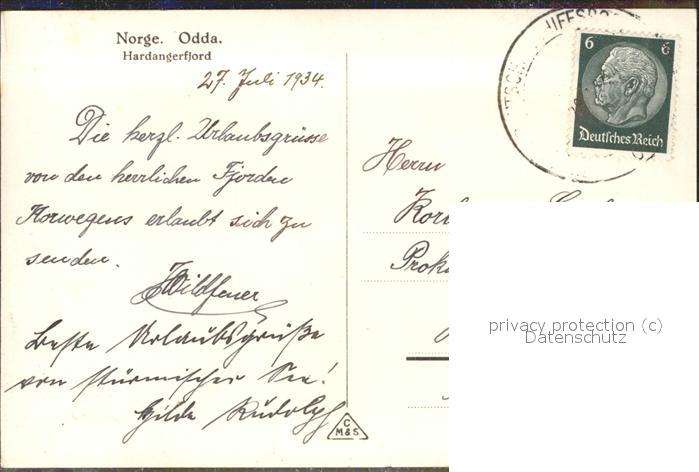 Norge. Odda.
Hardangerfjord
27. Juli 1934.
Die herzl. Urlaubsgrüsse
von den herrlichen Fjorden
Norwegens erlaubt sich zu
senden.
Wildfeuer
Beste Urlaubsgrüße
von stürmischer See!
Hilde Rudolph
C
M&S
6 6
Deutsches Reich
Herrn
Prok
privacy protection (c)
Datenschutz